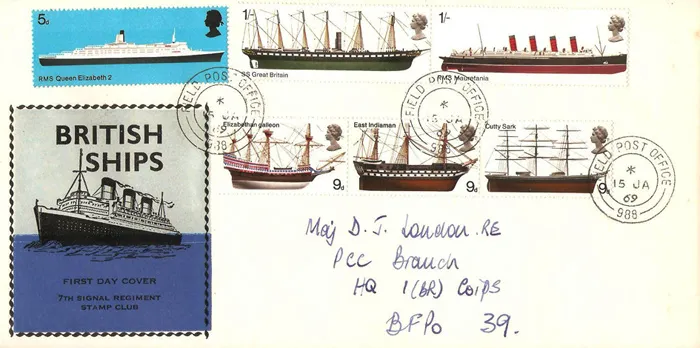 5d
RMS Queen Elizabeth 2
1/-
SS Great Britain
1/-
RMS Mauretania
Elizabethan galleon
9d
East Indiaman
9d
Cutty Sark
9d
FIELD POST OFFICE
*
988
FIELD POST OFFICE
*
15 JA
988
FIELD POST OFFICE
*
15 JA
69
988
BRITISH
SHIPS
FIRST DAY COVER
7TH SIGNAL REGIMENT
STAMP CLUB
Maj D. J. London. RE
PCC Branch
HQ 1(BR) Corps
BFPO 39.